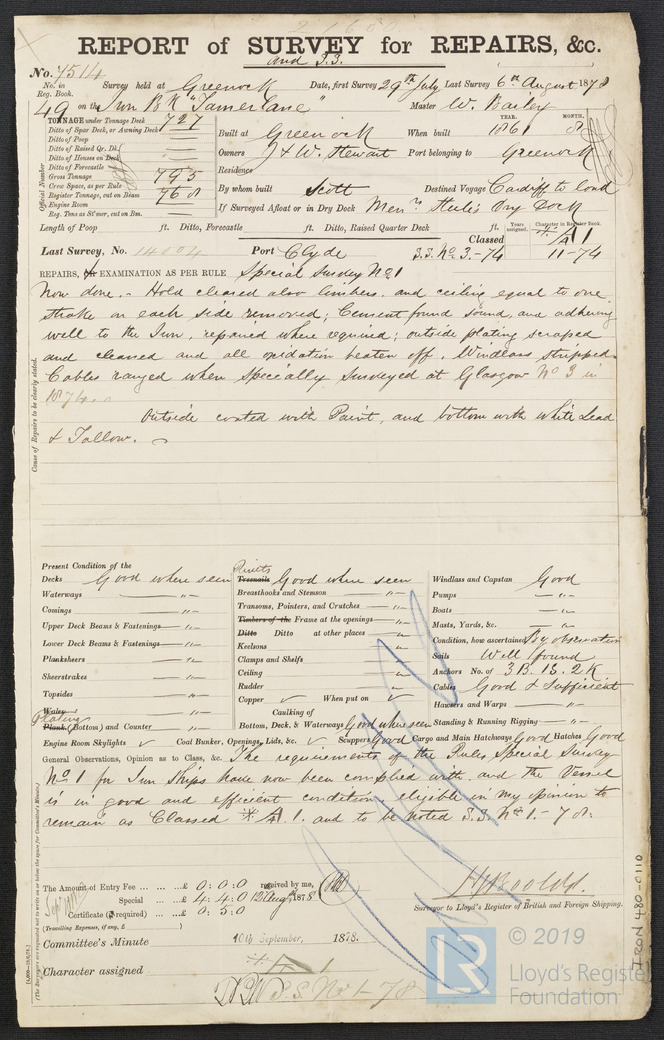 REPORT of SURVEY for REPAIRS, &c.
and S.S.
No. 7514
No. in Reg. Book. Survey held at Greenock Date, first Survey 29th July Last Survey 6th August 1878
49 on the Iron Bk "Tamerlane" Master W. Bailey
TONNAGE under Tonnage Deck 727
Ditto of Spar Deck, or Awning Deck
Ditto of Poop
Ditto of Raised Qr. Dk.
Ditto of Houses on Deck
Ditto of Forecastle
Gross Tonnage 795
Crew Space, as per Rule
Register Tonnage, cut on Beam 768
Engine Room
Reg. Tons as St'mer, cut on Bm.
Official Number
Built at Greenock When built YEAR. 1861 MONTH. 8
Owners J & W. Stewart Port belonging to Greenock
Residence
By whom built Scott Destined Voyage Cardiff to load
If Surveyed Afloat or in Dry Dock Messrs Steele's Dry Dock
Length of Poop ft. Ditto, Forecastle ft. Ditto, Raised Quarter Deck ft.
Years assigned. Character in Register Book.
Classed A 1
Last Survey, No. 14804 Port Clyde S.S. No. 3.-74 11-74
REPAIRS, or EXAMINATION AS PER RULE Special Survey No 1
Now done.- Hold cleared also limbers, and ceiling equal to one
strake on each side removed; Cement found sound, and adhering
well to the Iron, repaired where required; outside plating scraped
and cleaned and all oxidation beaten off. Windlass stripped.
Cables ranged when Specially Surveyed at Glasgow No 3 in
1874.
Outside coated with Paint, and bottom with White Lead
& Tallow.
Cause of Repairs to be clearly stated.
Present Condition of the
Decks Good where seen
Waterways -"-
Comings -"-
Upper Deck Beams & Fastenings -"-
Lower Deck Beams & Fastenings -"-
Planksheers -"-
Sheerstrakes -"-
Topsides -"-
Wales
Plating
Plank (Bottom) and Counter -"-
Engine Room Skylights ✓ Coal Bunker, Openings, Lids, &c. ✓ Scuppers Good Cargo and Main Hatchways Good Hatches Good
Rivets
Treenails Good where seen
Breasthooks and Stemson -"-
Transoms, Pointers, and Crutches -"-
Timbers of the Frame at the openings -"-
Ditto Ditto at other places -"-
Keelsons -"-
Clamps and Shelfs -"-
Ceiling -"-
Rudder -"-
Copper ✓ When put on ✓
Caulking of
Bottom, Deck, & Waterways Good where seen
Windlass and Capstan Good
Pumps -"-
Boats -"-
Masts, Yards, &c. -"-
Condition, how ascertained By observation
Sails Well found
Anchors No. of 3 B. 1 S. 2 K
Cables Good & Sufficient
Hawsers and Warps -"-
Standing & Running Rigging -"-
General Observations, Opinion as to Class, &c. The requirements of the Rules Special Survey
No 1 for Iron Ships have now been complied with and the Vessel
is in good and efficient condition, eligible in my opinion to
remain as Classed A. 1. and to be noted S.S. No 1-78.
The Amount of Entry Fee £ 0:0:0 received by me,
Special £ 4:4:0 12 Aug 1878
Certificate (if required) £ 0:5:0
(Travelling Expenses, if any, £ )
Surveyor to Lloyd's Register of British and Foreign Shipping.
Committee's Minute 10th September, 1878.
Character assigned A 1
S.S. No 1-78
(The Surveyors are requested not to write on or below the space for Committee's Minute.)
IRON 480-0110
LR
© 2019
Lloyd's Register
Foundation